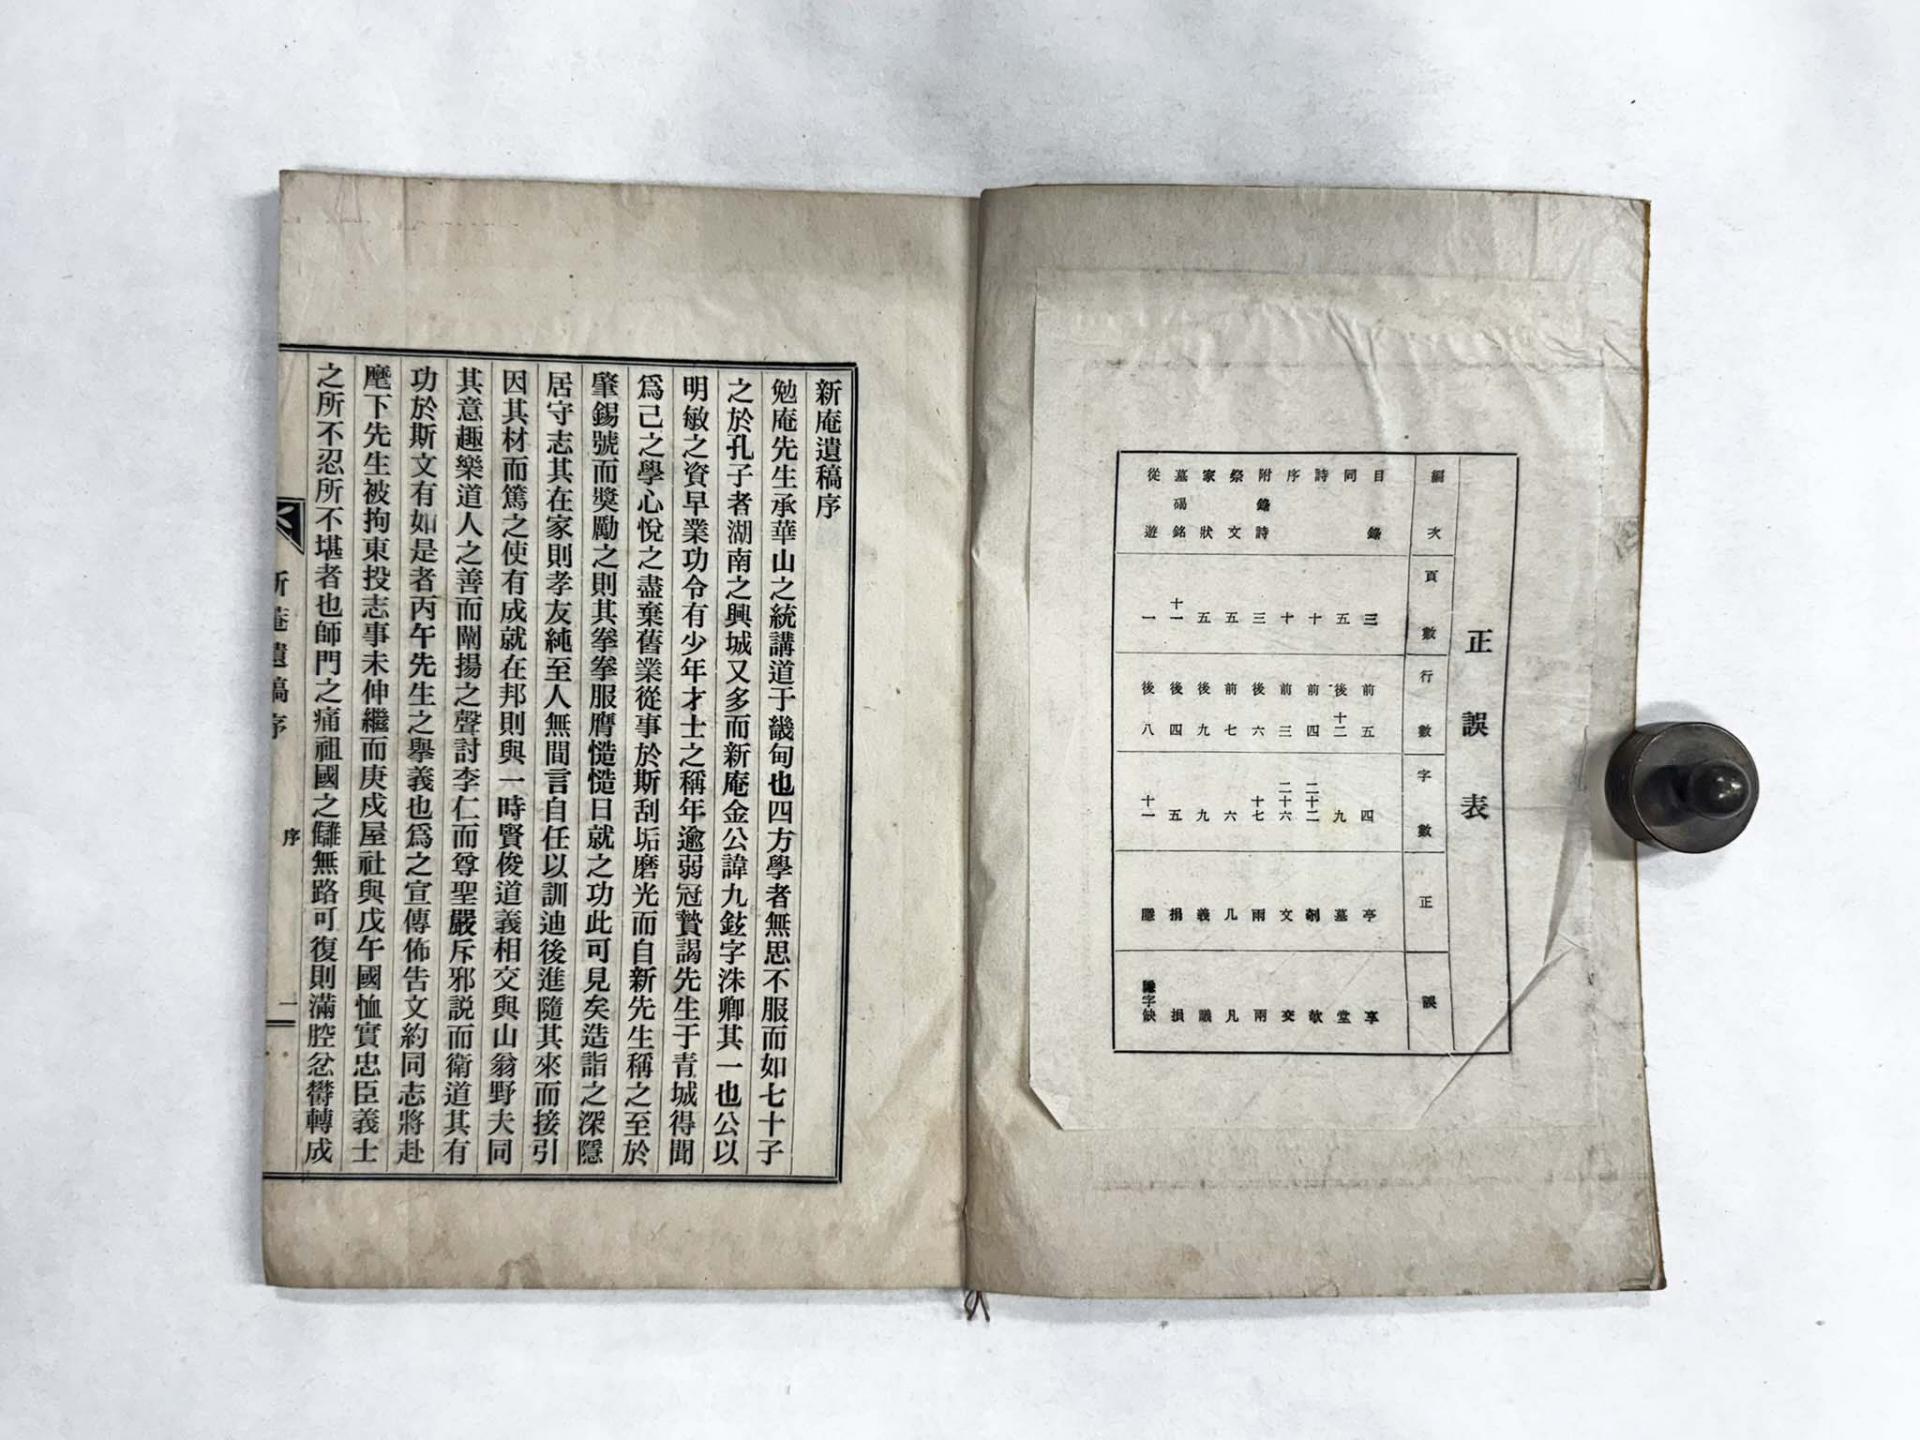 正誤表
編次 頁數 行數 字數 正 誤
目錄 三 前五 四 亭 享
同 五 後十二 九 墓 堂
詩 十 前四 二十二
序 十 前三 二十六 文 交
附錄詩 三 後六 十七 兩 雨
祭文 五 前七 六 几 凡
家狀 五 後九 九 義 議
墓碣銘 十一 後四 五 捐 損
從遊 一 後八 十一 隱 隱字缺
新庵遺稿序
勉庵先生承華山之統講道于畿甸也四方學者無思不服而如七十子
之於孔子者湖南之興城又多而新庵金公諱九鉉字洙卿其一也公以
明敏之資早業功令有少年才士之稱年逾弱冠贄謁先生于青城得聞
爲己之學心悅之盡棄舊業從事於斯刮垢磨光而自新先生稱之至於
肇錫號而奬勵之則其拳拳服膺慥慥日就之功此可見矣造詣之深隱
居守志其在家則孝友純至人無間言自任以訓迪後進隨其來而接引
因其材而篤之使有成就在邦則與一時賢俊道義相交與山翁野夫同
其意趣樂道人之善而闡揚之聲討李仁而尊聖嚴斥邪説而衛道其有
功於斯文有如是者丙午先生之擧義也爲之宣傳佈告文約同志將赴
麾下先生被拘東投志事未伸繼而庚戍屋社與戊午國恤實忠臣義士
之所不忍所不堪者也師門之痛祖國之讎無路可復則滿腔忿欝轉成
新庵遺稿序
序
一